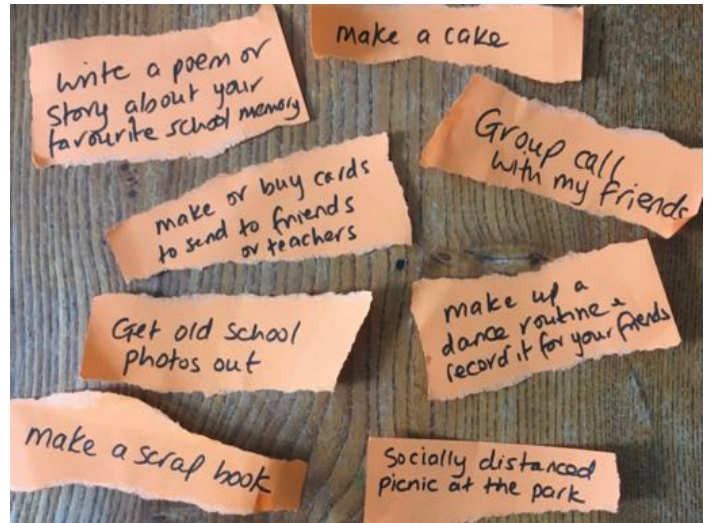 write a poem or
story about your
favourite school memory
make a cake
Group call
with my friends
make or buy cards
to send to friends
or teachers
Get old school
photos out
make up a
dance routine +
record it for your friends
make a scrap book
Socially distanced
picnic at the park